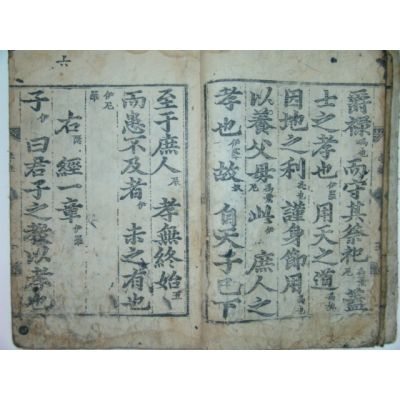 爵祿而守其祭祀蓋
士之孝也伊羅用天之道
因地之利謹身節用
以養父母此伊庶人之
孝也故自天子已下
至于庶人孝無終始
而患不及者伊未之有也
伊尼羅
右經一章伊羅
子伊曰君子之敎以孝也
六